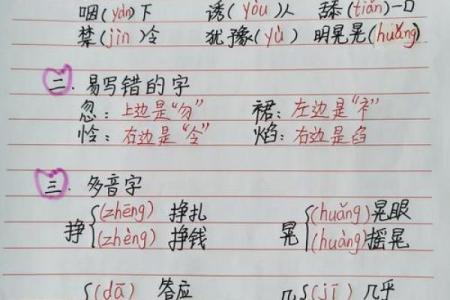 咽(yàn)下 诱(yòu)人 舔(tiǎn)一口
禁(jìn)令 犹豫(yù) 明晃晃(huǎng)
二、易写错的字
忽：上边是“勿” 裙：左边是“衤”
怜：右边是“令” 焰：右边是臽
三、多音字
挣{(zhēng) 挣扎 晃{(huǎng)晃眼
(zhèng) 挣钱 (huàng)摇晃
{(dā) 答应 几{(jī) 几乎